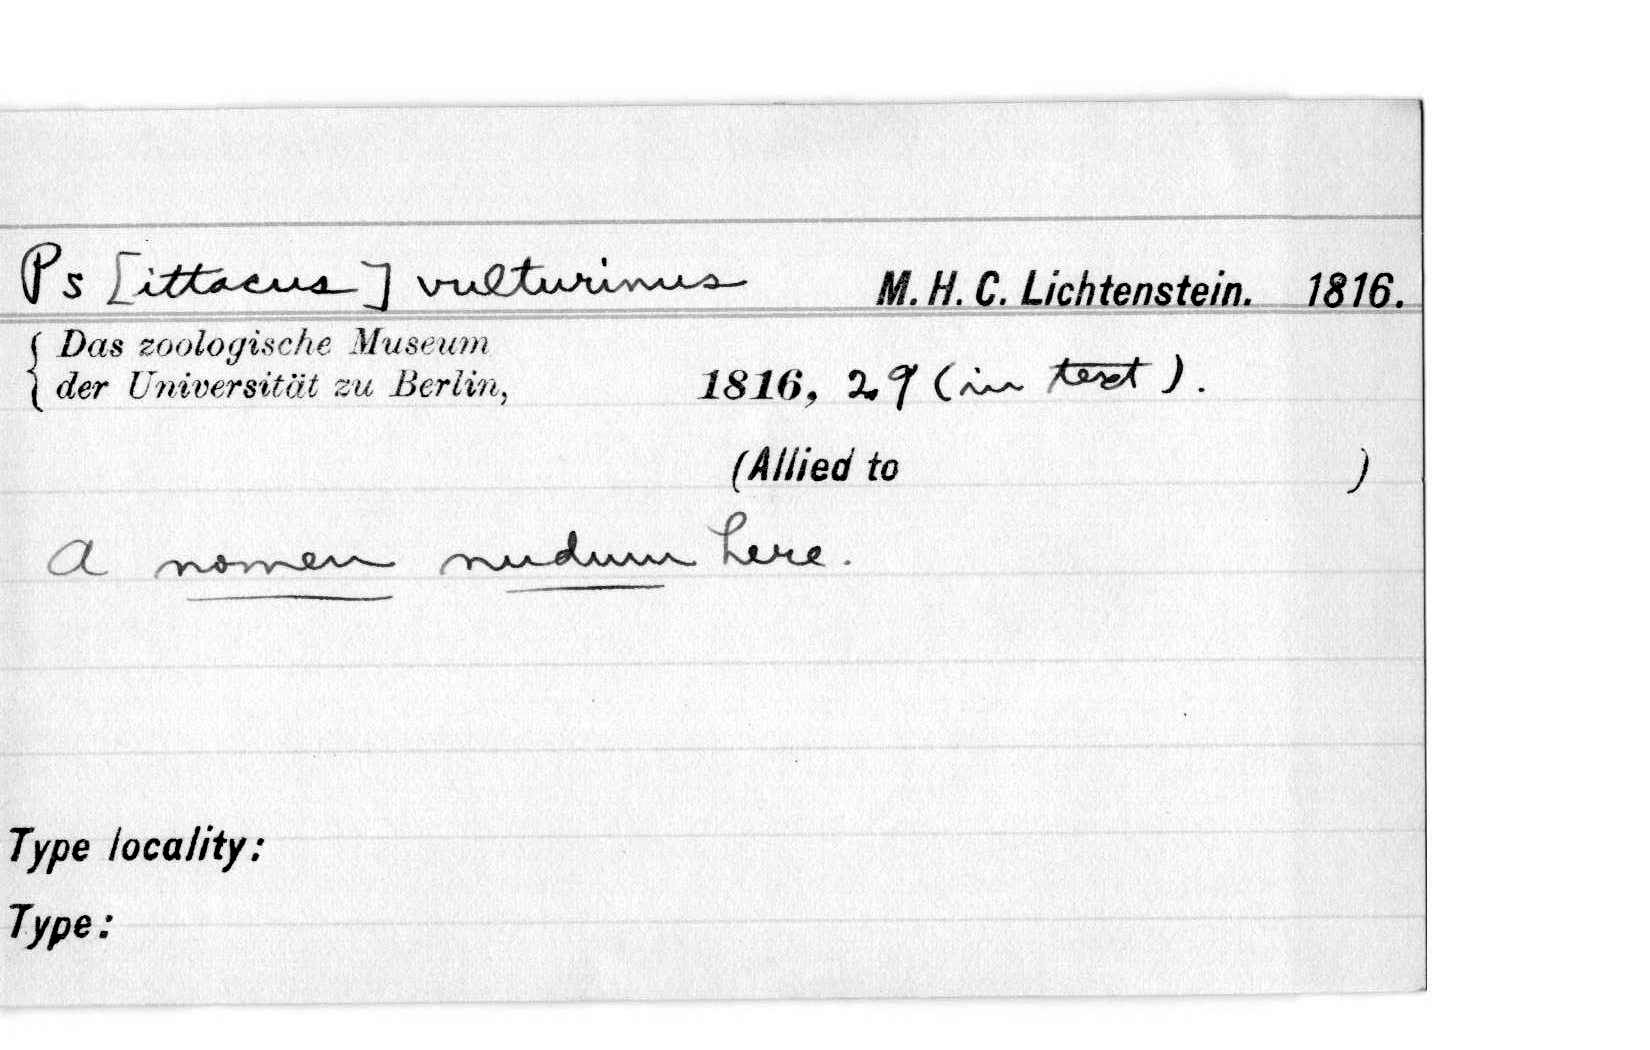 Ps [ittacus] vulturinus M. H. C. Lichtenstein. 1816.
Das zoologische Museum
der Universität zu Berlin, 1816, 29 (in text).
(Allied to )
A nomen nudum here.
Type locality:
Type: